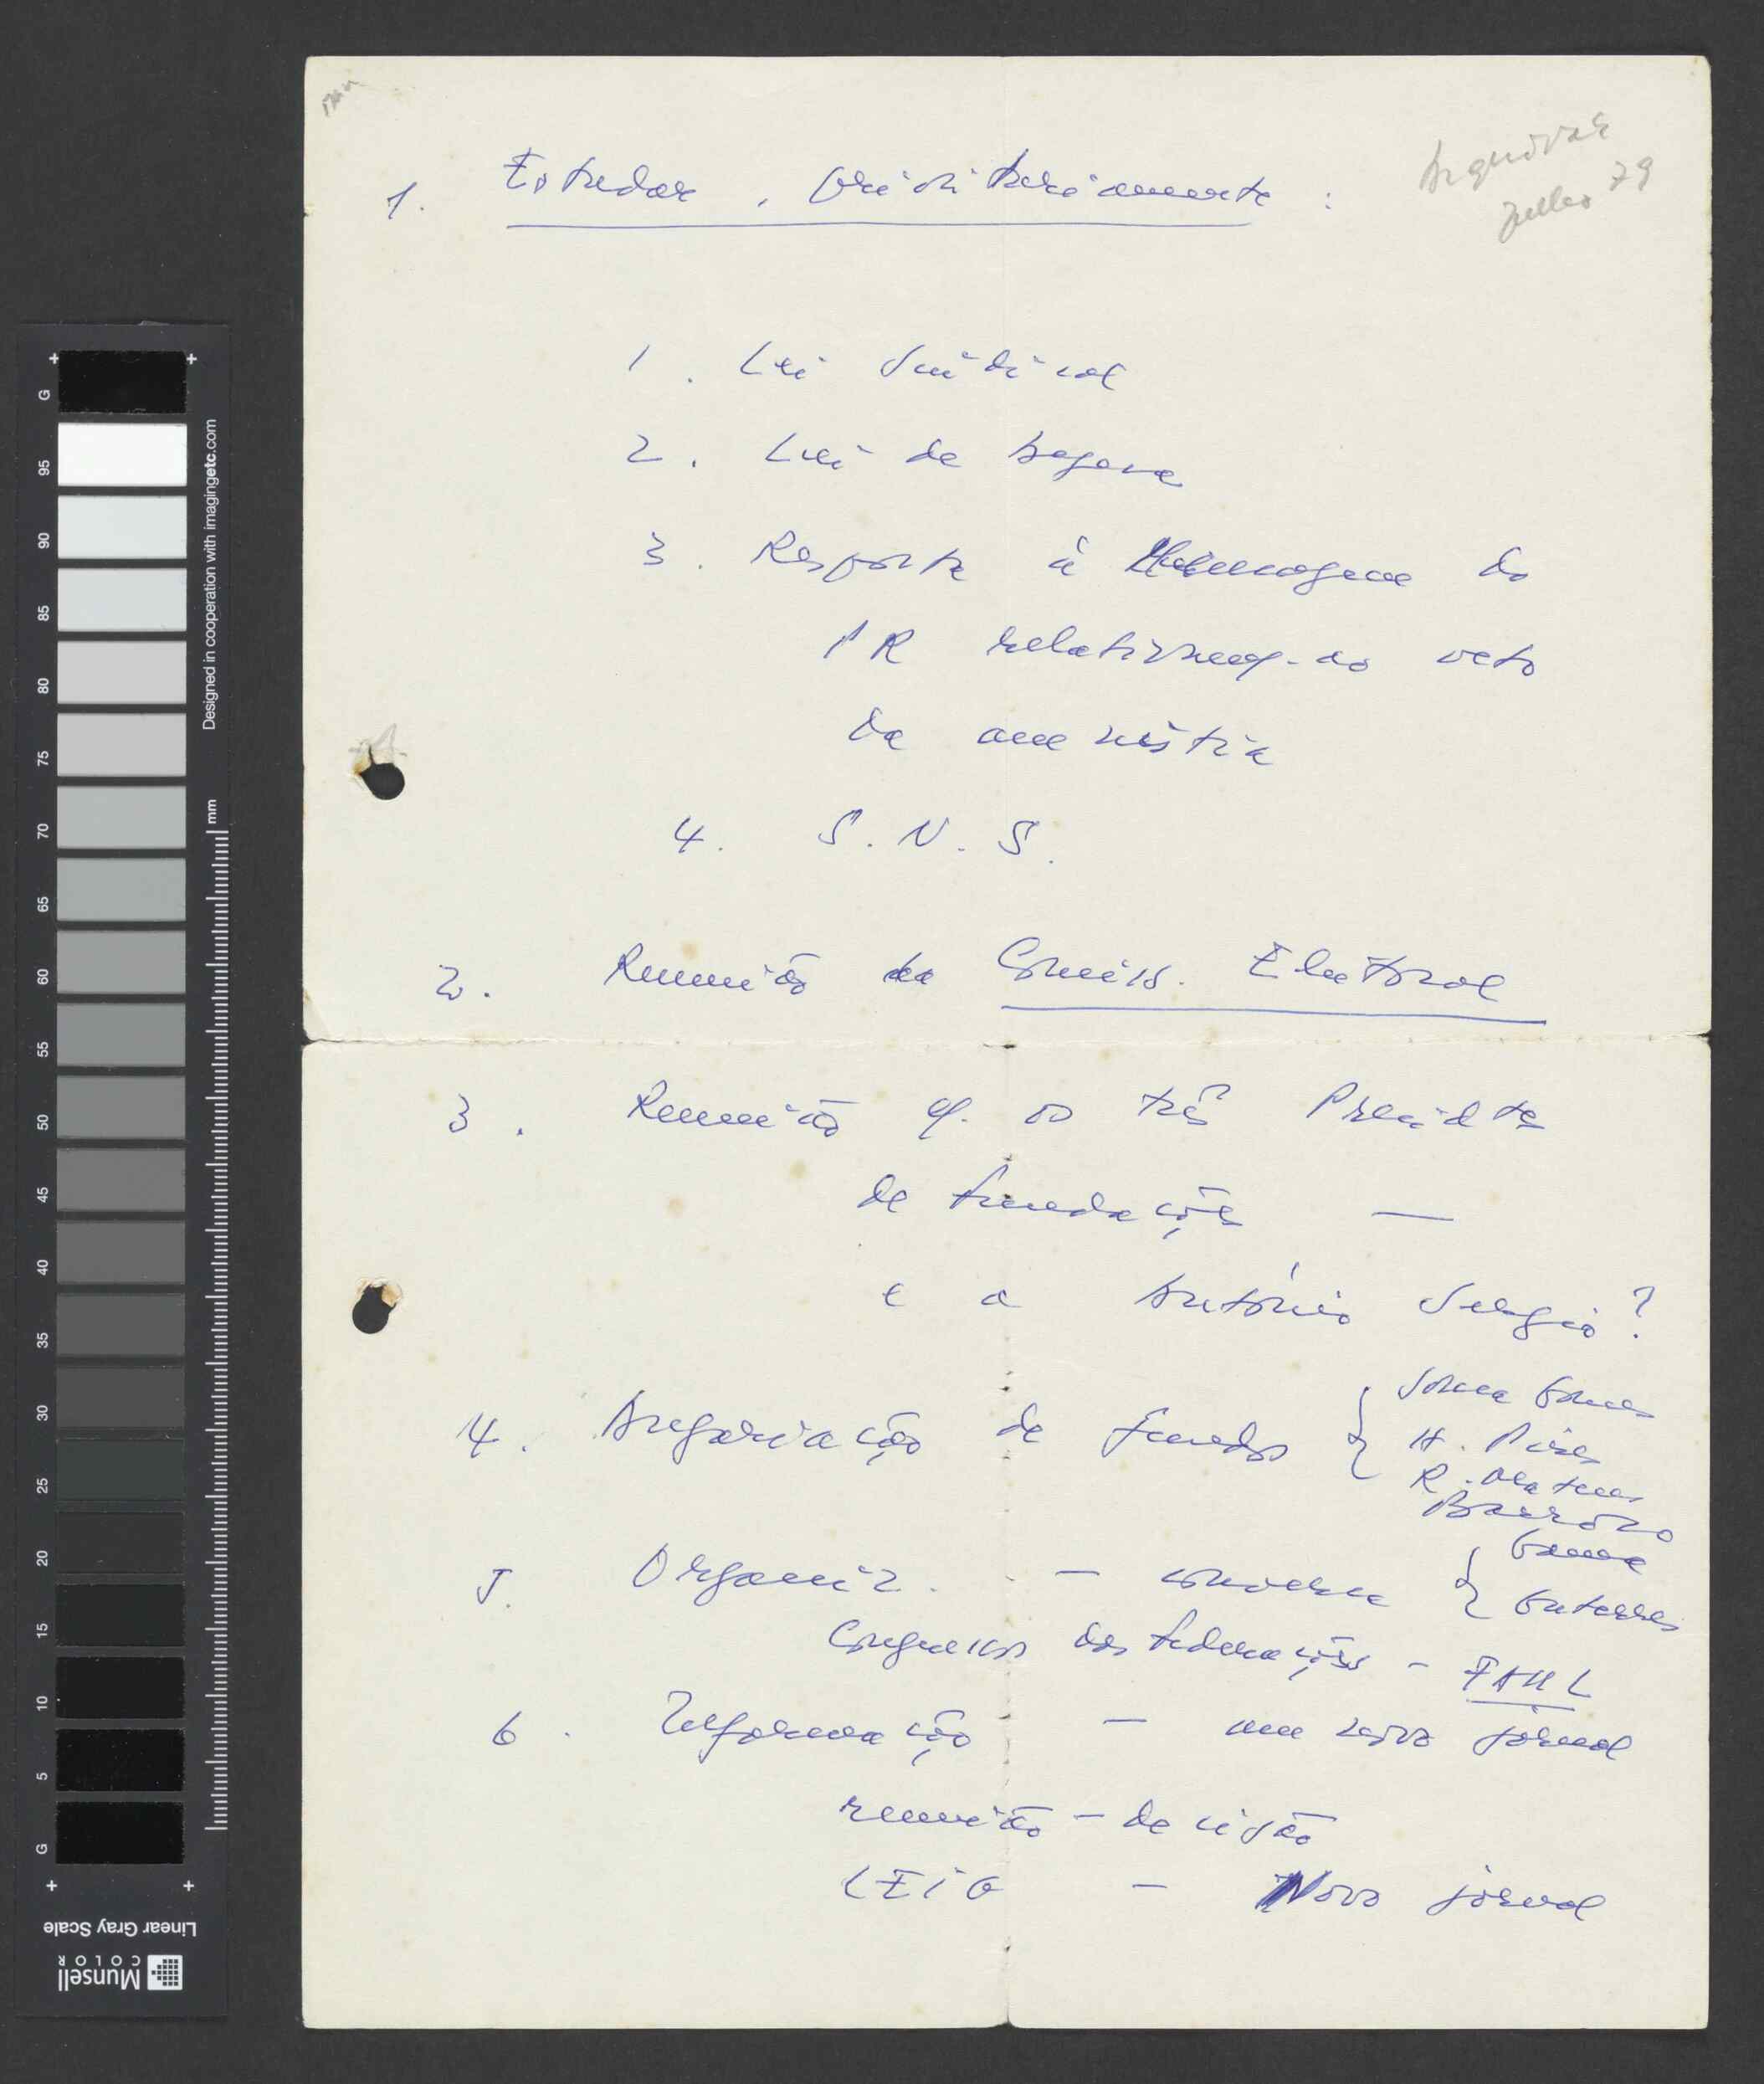 Arquivar
Julho 79
1. Estudar, prioritariamente :
1. Lei Sindical
2. Lei de
3. Resposta à Mensagem do
PR relativam. ao veto
da amnistia
4. S. N. S.
2. Reunião da Comiss. Eleitoral
3. Reunião c/. os três Presidtes
de fundações —
e a António Sérgio?
4. Angariação de fundos { Soma Gomes
H. Pires
R. Mateus
Barroso
5. Organiz. — conversa { Gama
Guterres
Congressos das federações – FAUL
6. Informação — um novo jornal
reunião – decisão
LEIG — Novo jornal
G 95 90 85 80 75 70 65 60 55 50 45 40 35 30 25 20 15 10 5 G
Designed in cooperation with imagingetc.com
mm
Linear Gray Scale
Munsell
COLOR